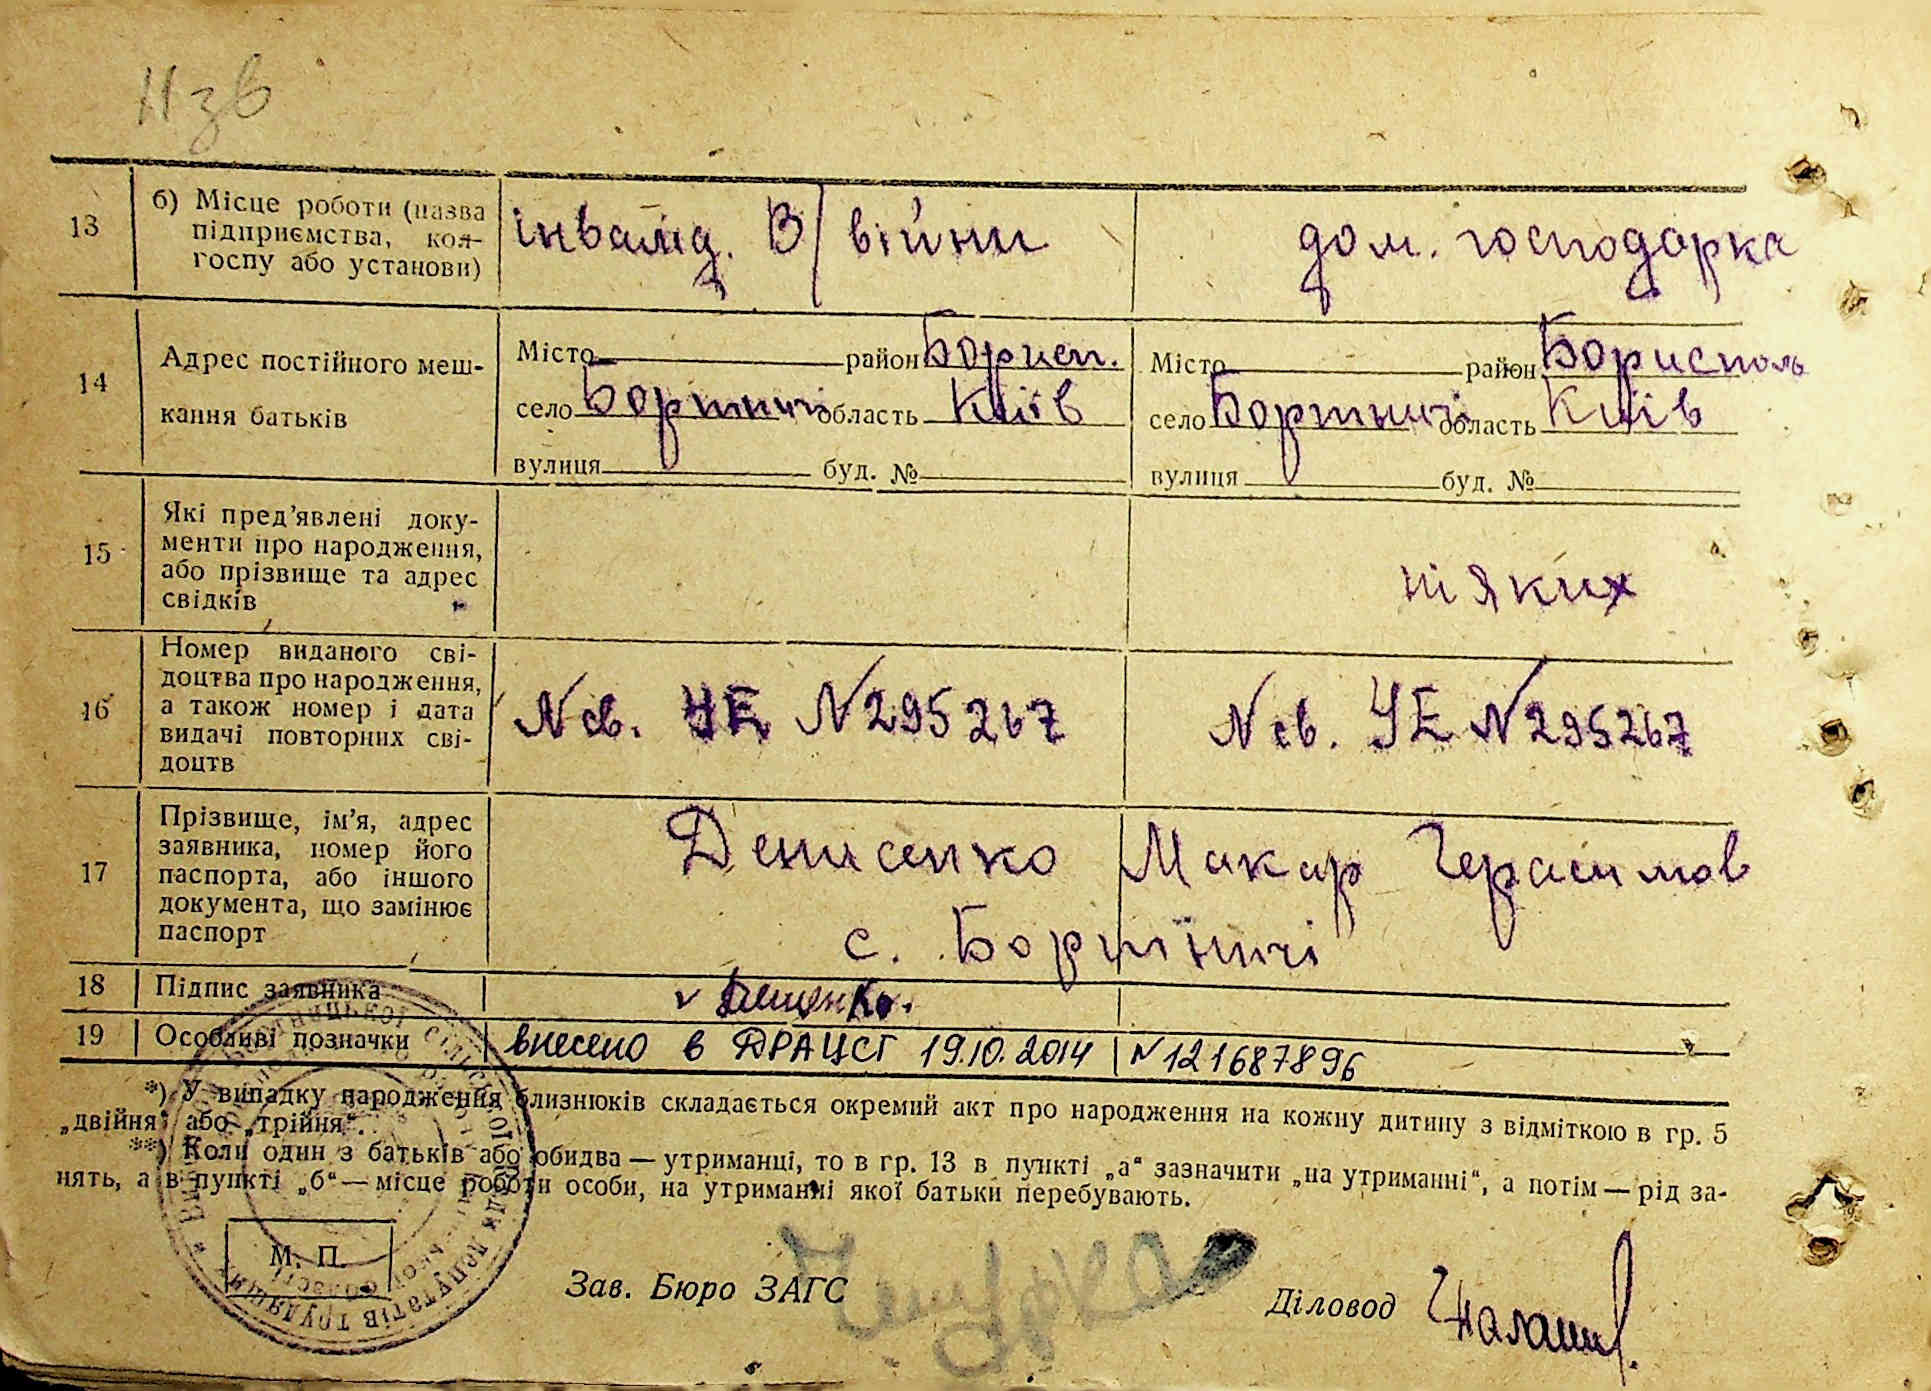 Нзв
13 б) Місце роботи (назва підприємства, кол-госпу або установи) інвалід. В/війни дом. господарка
14 Адрес постійного меш-
Місто район Борисп. Місто район Бориспол
кання батьків
село Бортничі область Київ село Бортничі область Київ
вулиця буд. № вулиця буд. №
15 Які пред'явлені доку-
менти про народження,
або прізвище та адрес
свідків
ніяких
16 Номер виданого сві-
доцтва про народження,
а також номер і дата
видачі повторних сві-
доцтв
N св. УЕ N 295267 N св. УЕ N 295267
17 Прізвище, ім'я, адрес
заявника, номер його
паспорта, або іншого
документа, що замінює
паспорт
Денисенко Макар Герасимов
с. Бортничі
18 Підпис заявника
19 Особливі позначки внесено в ДРАЦСГ 19.10.2014 N 121687896
*) У випадку народження близнюків складається окремий акт про народження на кожну дитину з відміткою в гр. 5
„двійня" або „трійня".
**) Коли один з батьків або обидва — утриманці, то в гр. 13 в пункті „а" зазначити „на утриманні", а потім — рід за-
нять, а в пункті „б" — місце роботи особи, на утриманні якої батьки перебувають.
М. П.
Зав. Бюро ЗАГС
Діловод